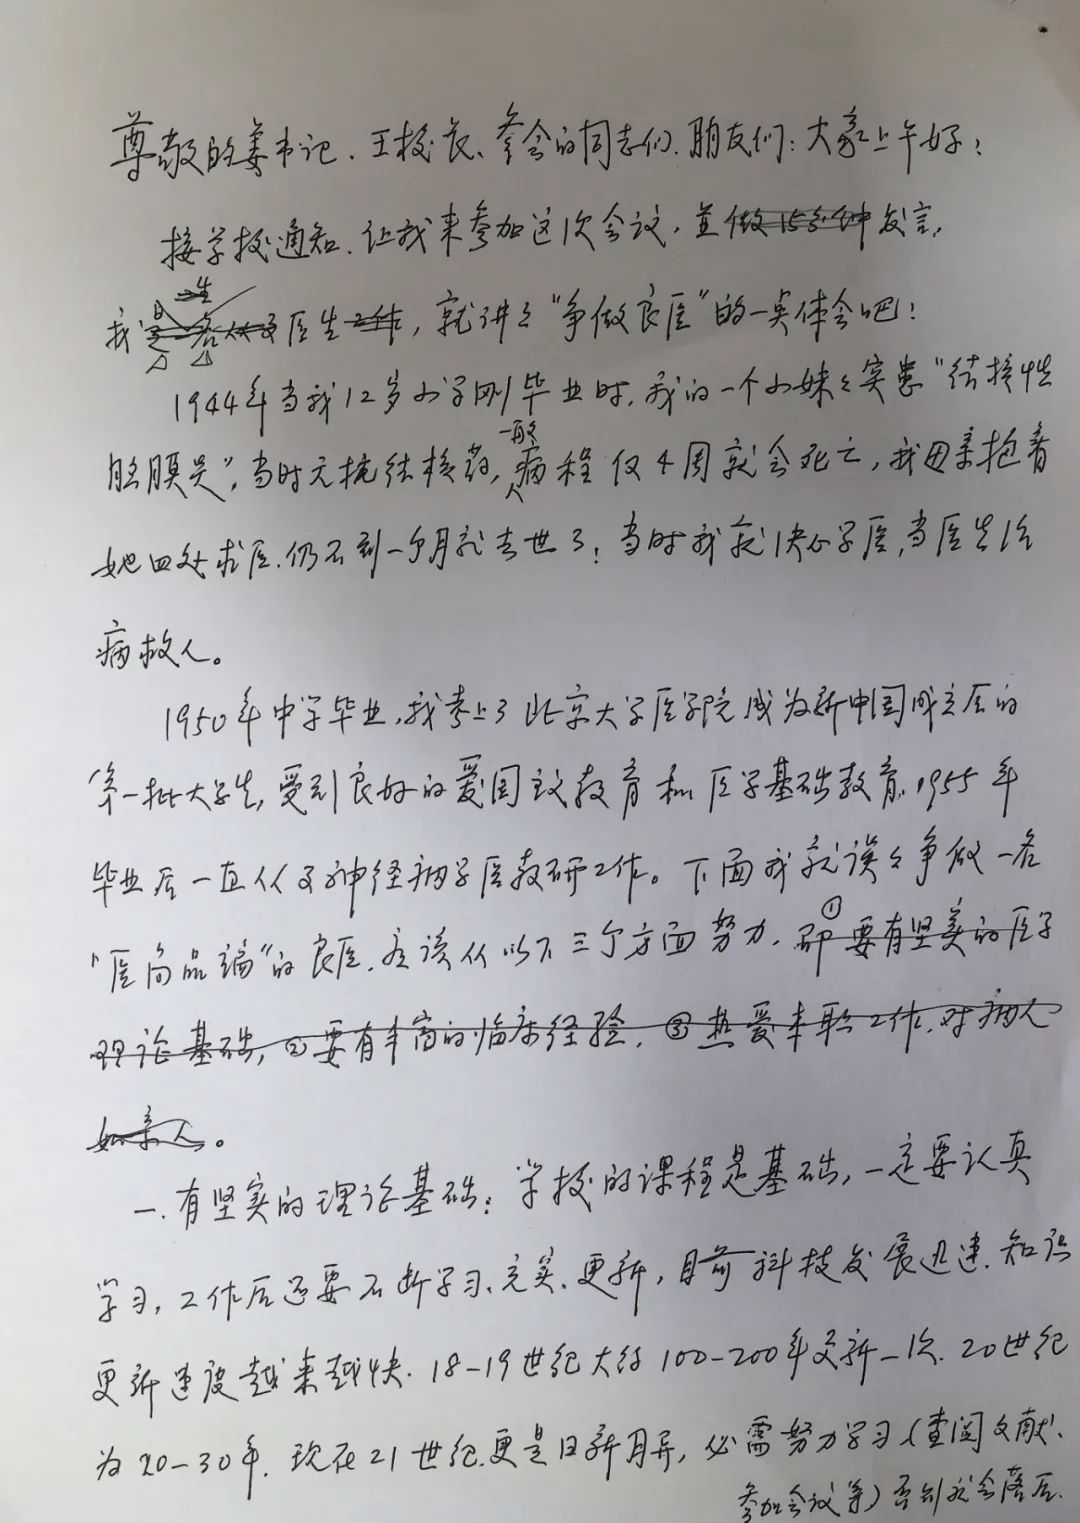 尊敬的姜书记、王校长、参会的同志们、朋友们：大家上午好！
接学校通知、让我来参加这次会议，並做15分钟发言，
生
我是名从事医生工作，就讲讲"争做良医"的一点体会吧！
1944年当我12岁小学刚毕业时，我的一个小妹妹突患"结核性
一般
脑膜炎"，当时无抗结核药，病程仅4周就会死亡，我母亲抱着
她四处求医，仍不到一个月就去世了；当时我就决心学医，当医生治
病救人。
1950年中学毕业，我考上了北京大学医学院成为新中国成立后的
第一批大学生，受到良好的爱国主义教育和医学基础教育，1955年
毕业后一直从事神经病学医教研工作。下面我就谈谈争做一名
"医高品端"的良医，应该从以下三个方面努力，即①要有坚实的医学
理论基础，②要有丰富的临床经验，③热爱本职工作，对病人
如亲人。
一、有坚实的理论基础：学校的课程是基础，一定要认真
学习，工作后还要不断学习、充实、更新，目前科技发展迅速，知识
更新速度越来越快，18-19世纪大约100-200年更新一次，20世纪
为20-30年，现在21世纪更是日新月异，必需努力学习（查阅文献、
参加会议等）否则就会落后。